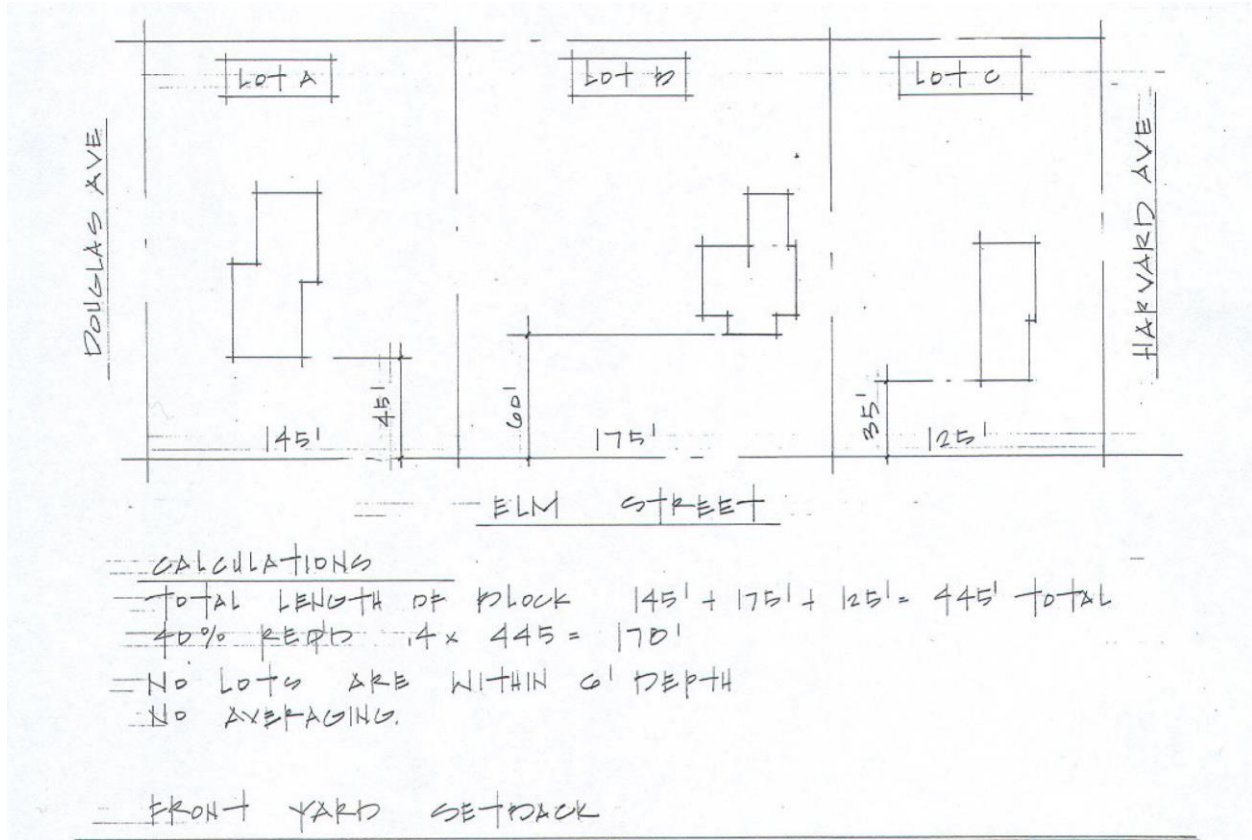 LOT A
LOT B
LOT C
DOUGLAS AVE
HARVARD AVE
45'
60'
35'
145'
175'
125'
ELM STREET
CALCULATIONS
TOTAL LENGTH OF BLOCK 145' + 175' + 125' = 445' TOTAL
40% REQ'D .4 x 445 = 178'
NO LOTS ARE WITHIN 6' DEPTH
NO AVERAGING.
FRONT YARD SETBACK